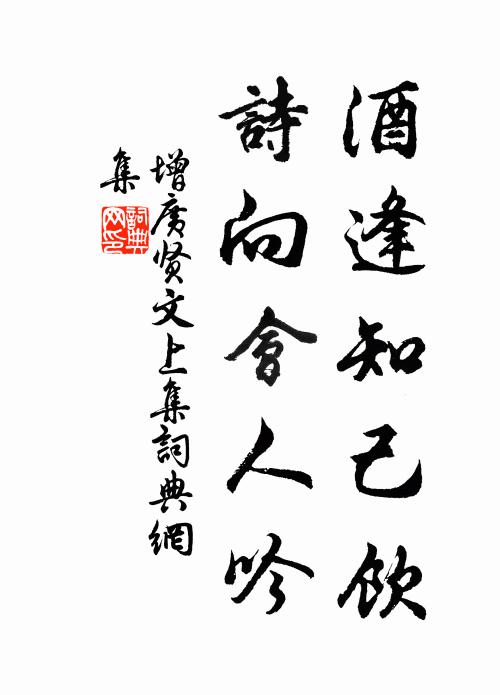 酒逢知己飲
詩向會人吟
增廣贤文上集詞典網
集
詞典
网印